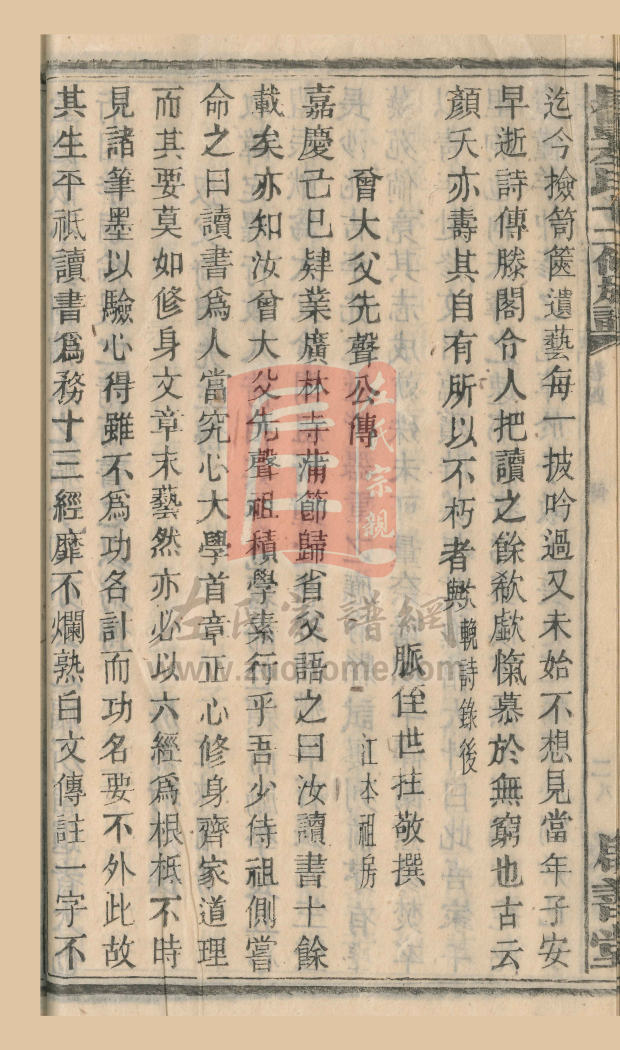 迄今撿笥篋遺藝每一披吟過又未始不想見當年子安
早逝詩傳滕閣令人把讀之餘欷歔愾慕於無窮也古云
顏夭亦壽其自有所以不朽者歟 輓詩錄後
脈侄世拄敬撰
曾大父先聲公傳 江本祖房
嘉慶己巳肄業廣林寺蒲節歸省父語之曰汝讀書十餘
載矣亦知汝曾大父先聲祖積學素行乎吾少侍祖側嘗
命之曰讀書爲人當究心大學首章正心修身齊家道理
而其要莫如修身文章末藝然亦必以六經爲根柢不時
見諸筆墨以驗心得雖不爲功名計而功名要不外此故
其生平祗讀書爲務十三經靡不爛熟白文傳註一字不
左氏宗親
左氏宗譜網
www.zuohome.com